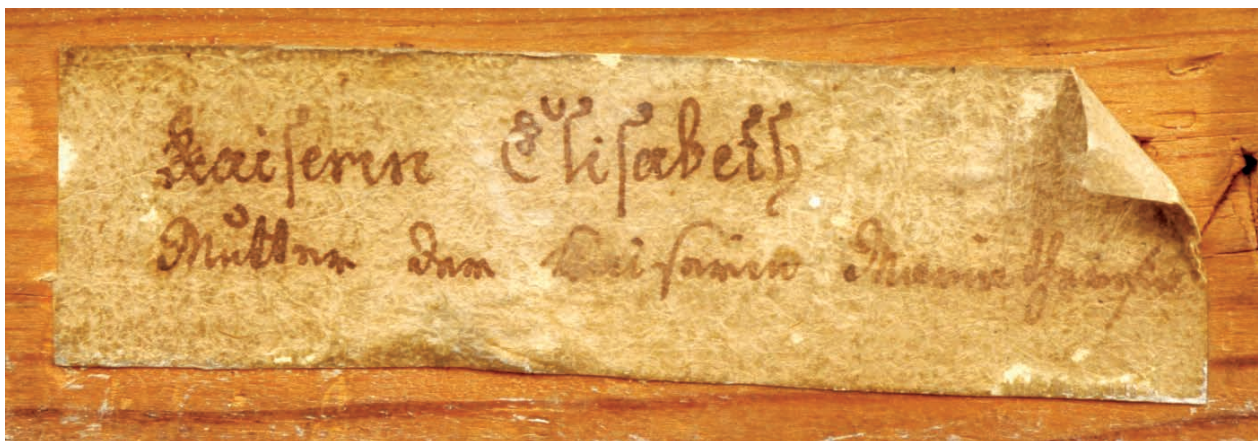 Kaiserin Elisabeth
Mutter der Kaiserin Maria Theresia